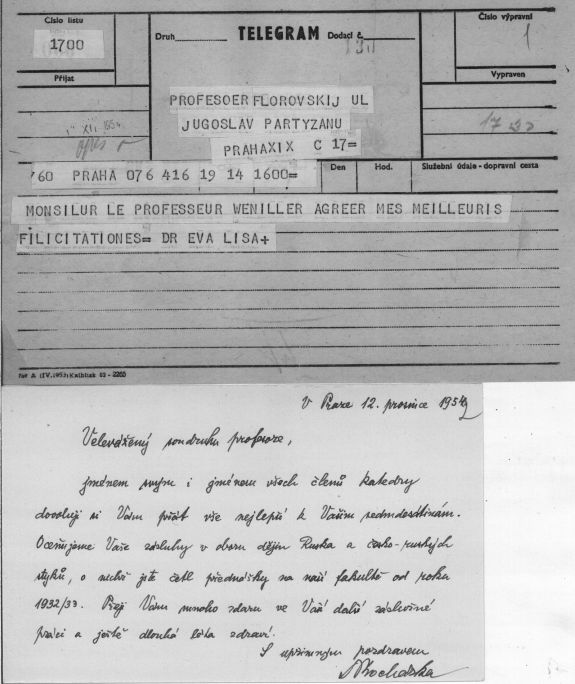 Číslo listu
1700
Druh
TELEGRAM
Dodací č.
Číslo výpravní
1
Přijat
Vypraven
PROFESOER FLOROVSKIJ UL
JUGOSLAV PARTYZANU
PRAHAXIX C 17=
XII 1954
17
760 PRAHA 076 416 19 14 1600=
Den
Hod.
Služební údaje - dopravní cesta
MONSILUR LE PROFESSEUR WENILLER AGREER MES MEILLEURIS
FILICITATIONES= DR EVA LISA+
V Praze 12. prosince 1954
Velevážený soudruhu profesore,
jménem svým i jménem všech členů katedry
dovoluji si Vám přát vše nejlepší k Vašim sedmdesátinám.
Oceňujeme Vaše zásluhy v oboru dějin Ruska a česko-ruských
styků, o nichž jste četl přednášky na naší fakultě od roku
1932/33. Přeji Vám mnoho zdaru ve Vaší další záslužné
práci a ještě dlouhá léta zdraví.
S upřímným pozdravem